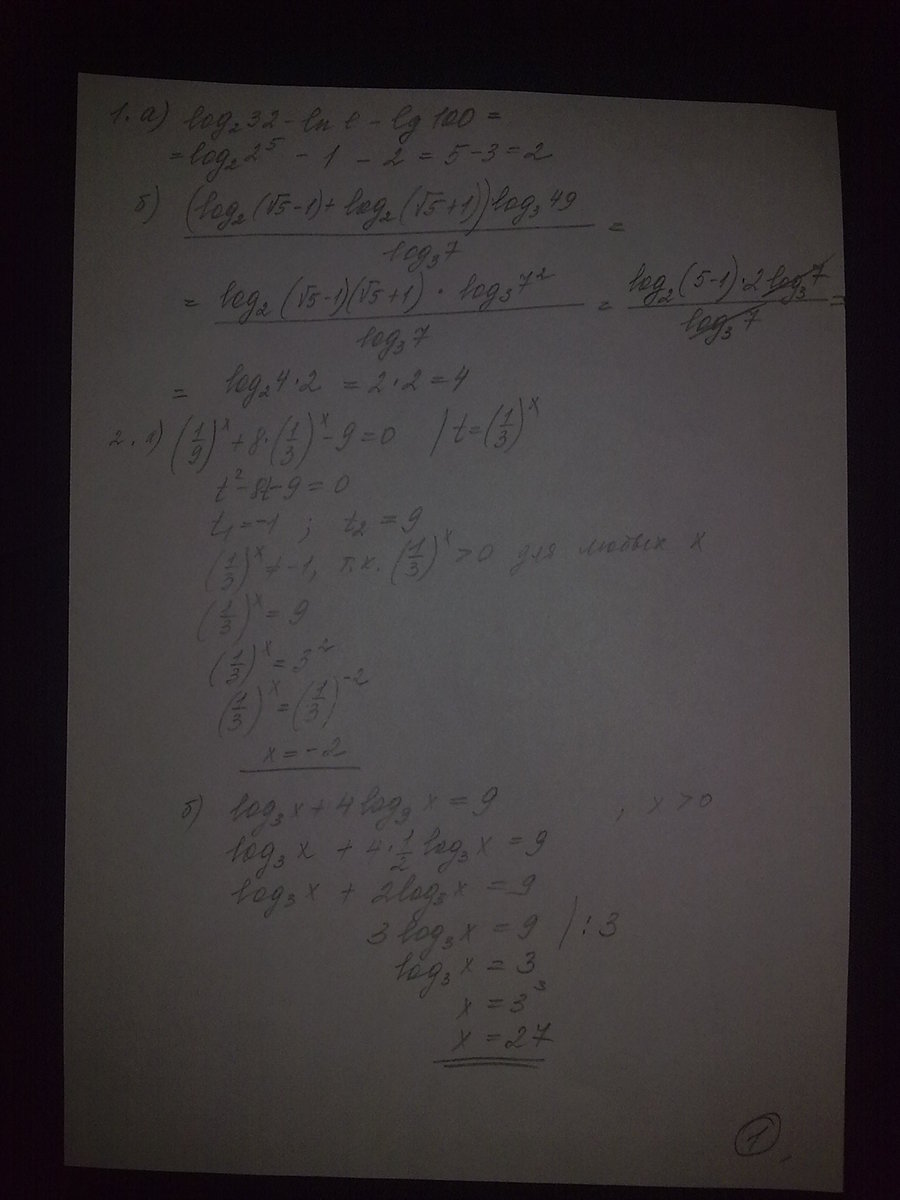 1. а) log₂32 - ln e - lg 100 =
= log₂2⁵ - 1 - 2 = 5 - 3 = 2
б) ((log₂(√5-1) + log₂(√5+1)) log₃49) / (log₃7) =
= (log₂(√5-1)(√5+1) · log₃7²) / (log₃7) = (log₂(5-1)·2 log₃7) / (log₃7) =
= log₂4·2 = 2·2 = 4
2. 1) (1/9)ˣ + 8·(1/3)ˣ - 9 = 0 | t = (1/3)ˣ
t² - 8t - 9 = 0
t₁ = -1 ; t₂ = 9
(1/3)ˣ ≠ -1, т.к. (1/3)ˣ > 0 для любых x
(1/3)ˣ = 9
(1/3)ˣ = 3²
(1/3)ˣ = (1/3)⁻²
x = -2
б) log₃x + 4 log₉x = 9 , x > 0
log₃x + 4·1/2 log₃x = 9
log₃x + 2log₃x = 9
3 log₃x = 9 | : 3
log₃x = 3
x = 3³
x = 27
1